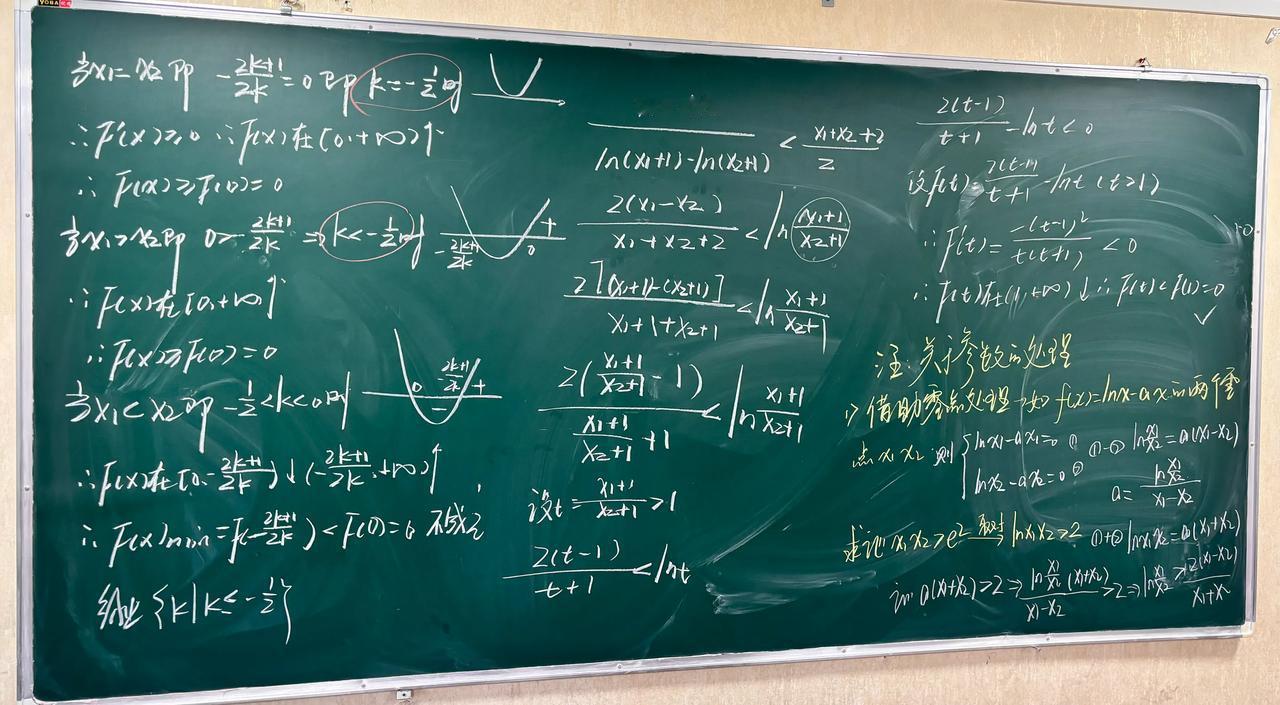 当x₁=x₂即 -\frac{2k+1}{2k}=0 即 k=-\frac{1}{2}时
∴F'(x)≥0 ∴F(x)在[0,+∞)↑
∴F(x)≥F(0)=0
当x₁>x₂即 0>-\frac{2k+1}{2k} ⇒ k<-\frac{1}{2}时
-\frac{2k+1}{2k} 0 +
∴F(x)在[0,+∞)↑
∴F(x)≥F(0)=0
当x₁<x₂即 -\frac{1}{2}<k<0时
0 -\frac{2k+1}{2k} + -
∴F(x)在[0,-\frac{2k+1}{2k})↓(-\frac{2k+1}{2k},+∞)↑
∴F(x)min=F(-\frac{2k+1}{2k})<F(0)=0 不成立
综上{k|k≤-\frac{1}{2}}
\frac{}{ln(x₁+1)-ln(x₂+1)}<\frac{x₁+x₂+2}{2}
\frac{2(x₁-x₂)}{x₁+x₂+2}<ln\frac{x₁+1}{x₂+1}
\frac{2[(x₁+1)-(x₂+1)]}{x₁+1+x₂+1}<ln\frac{x₁+1}{x₂+1}
\frac{2(\frac{x₁+1}{x₂+1}-1)}{\frac{x₁+1}{x₂+1}+1}<ln\frac{x₁+1}{x₂+1}
设t=\frac{x₁+1}{x₂+1}>1
\frac{2(t-1)}{t+1}<lnt
\frac{2(t-1)}{t+1}-lnt<0
设F(t)=\frac{2(t-1)}{t+1}-lnt(t>1)
∴F'(t)=\frac{-(t-1)²}{t(t+1)}<0
∴F(t)在(1,+∞)↓∴F(t)<F(1)=0
✓
注:关于参数的处理
1>借助零点处理 如f(x)=lnx-ax的两个零
点x₁ x₂ 则{lnx₁-ax₁=0 ① ①-② ln\frac{x₁}{x₂}=a(x₁-x₂)
lnx₂-ax₂=0 ② a=\frac{ln\frac{x₁}{x₂}}{x₁-x₂}
求证x₁x₂>e² 取对 lnx₁x₂>2 ①+② lnx₁x₂=a(x₁+x₂)
证a(x₁+x₂)>2⇒\frac{ln\frac{x₁}{x₂}(x₁+x₂)}{x₁-x₂}>2⇒ln\frac{x₁}{x₂}>\frac{2(x₁-x₂)}{x₁+x₂}